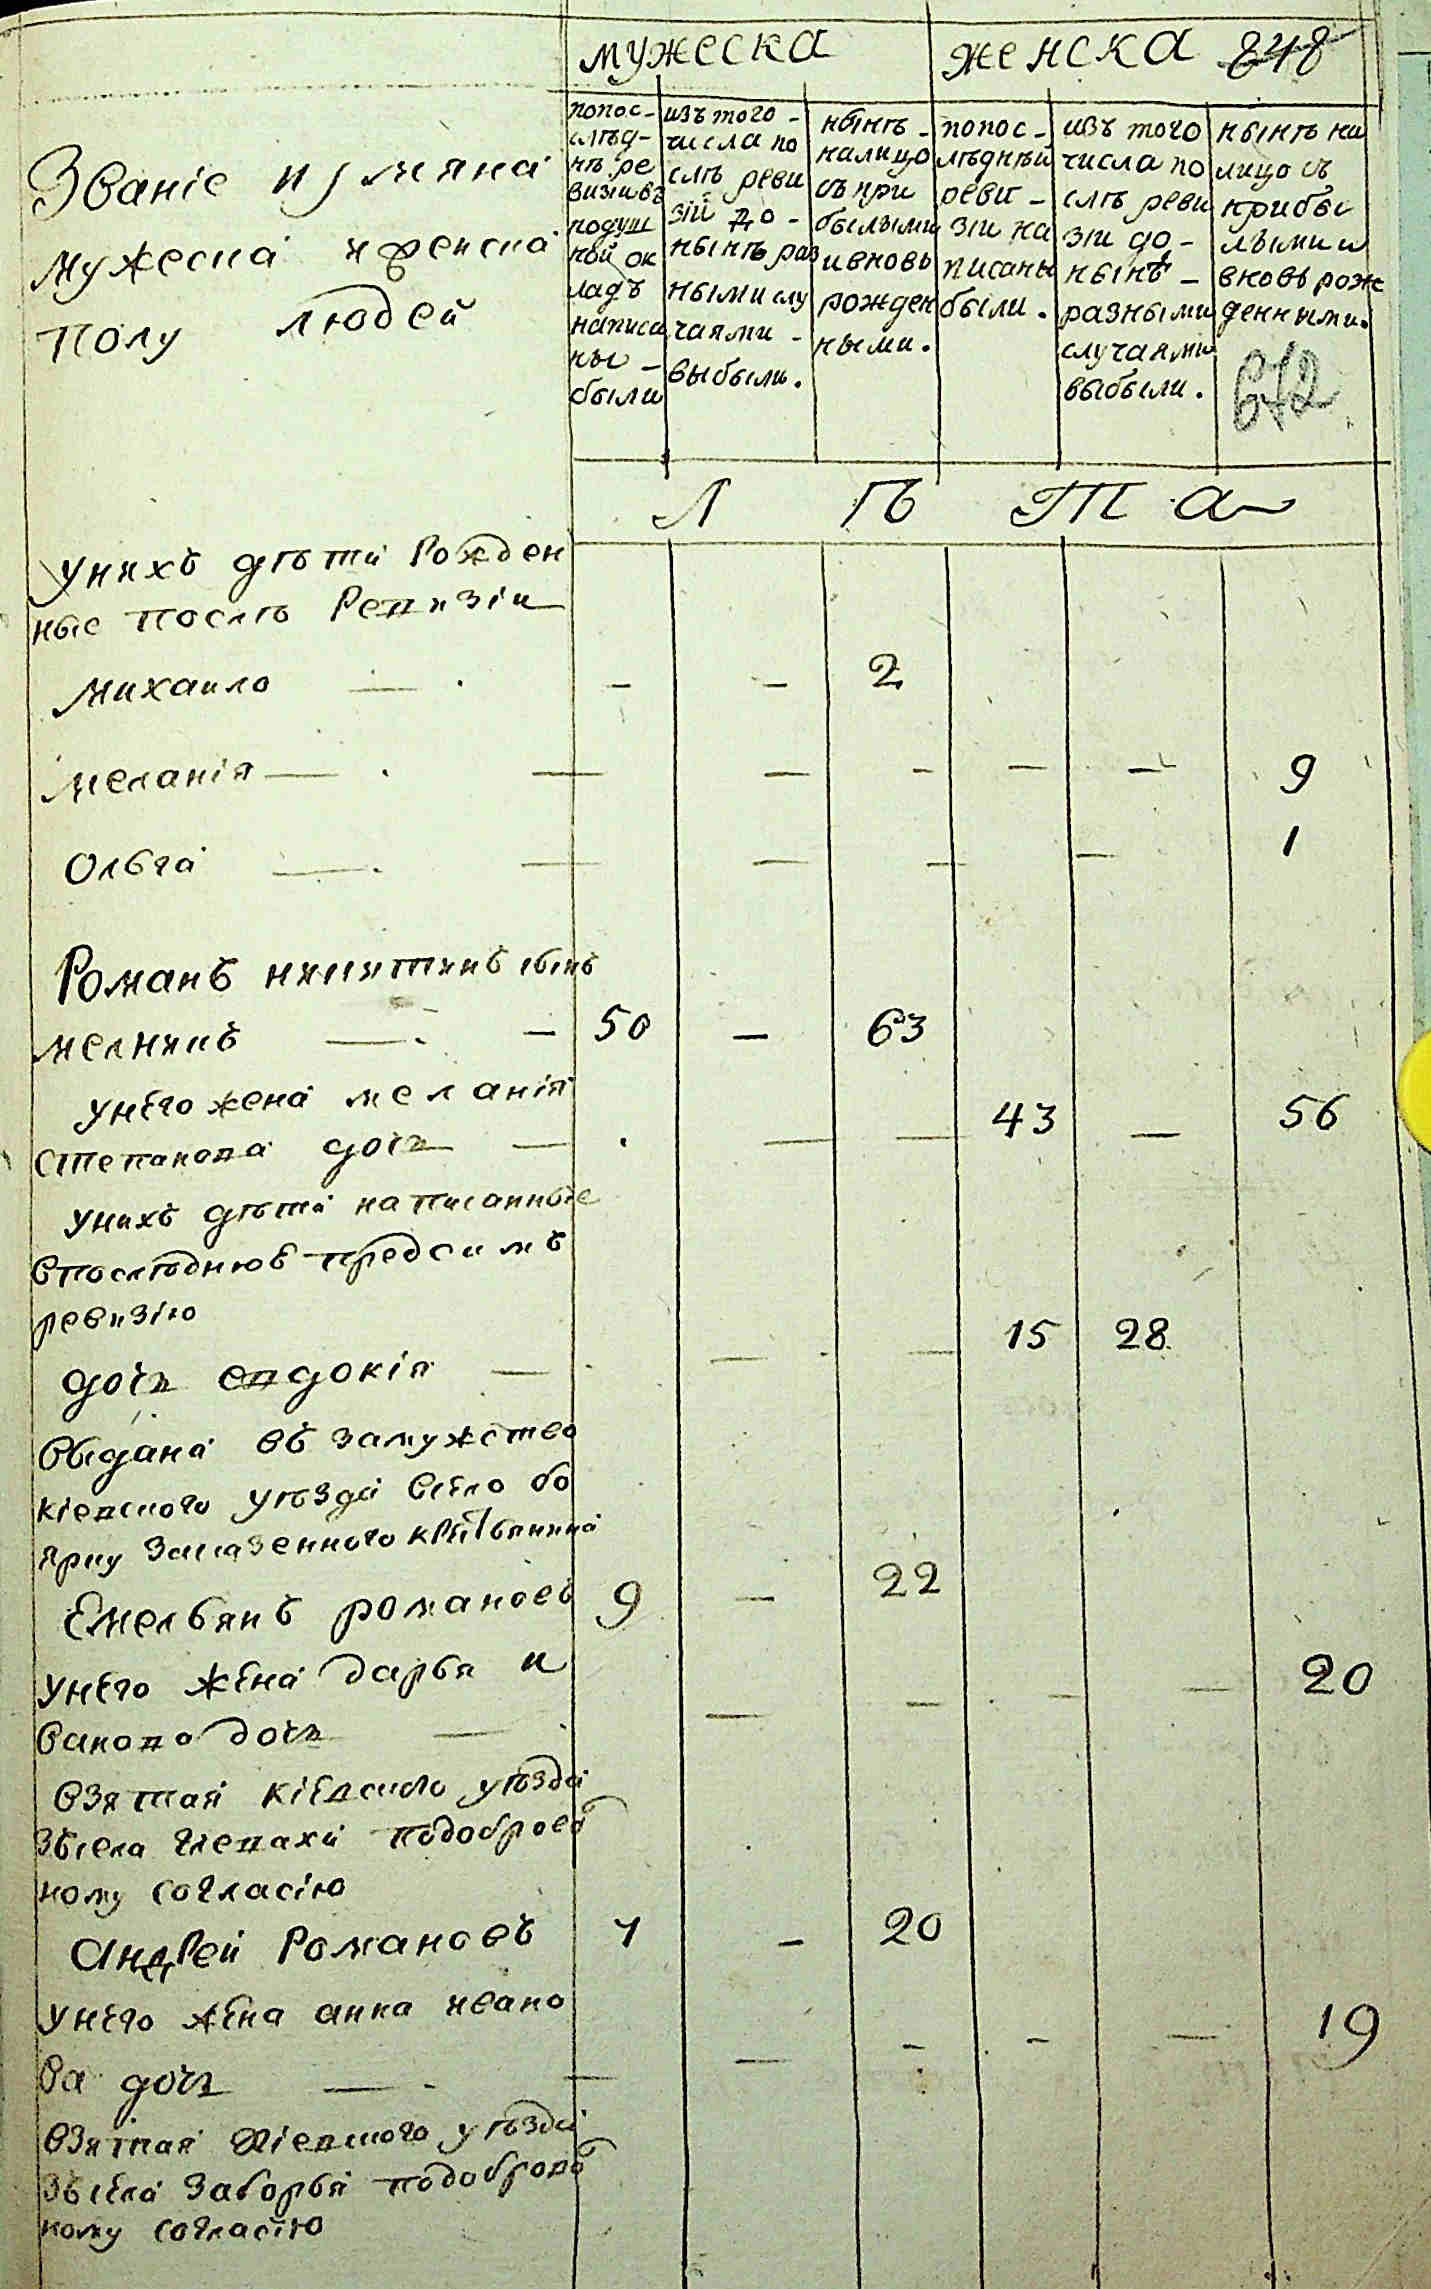 мужеска женска 848
Званіе и имяна
мужеска и женска
полу людей
попос-
лѣд-
нѣ ре
визии въ
подуш
ной ок
ладъ
написа
ны -
были
изъ того -
числа по
слѣ реви
зій до -
нынѣ раз
ными слу
чаями -
выбыли.
нынѣ -
налицо
съ при
былыми
и вновь
рожден
ными.
попос -
лѣдней
реви -
зіи на
писаны
были.
изъ того
числа по
слѣ реви
зіи до -
нынѣ -
разными
случаями
выбыли.
нынѣ на
лицо съ
прибы
лыми и
вновь рож
денными.
672
Л ѣ т а
Унихъ дѣти Рожден
ные послѣ Ревизіи
Михаило — . - - 2
Меланія — . — — - — — 9
Ольга — . — — — — 1
Романъ никитинъ сынъ
мелникъ — . — 50 — 63
унего жена меланія
степанова дочь — . — — 43 — 56
унихъ дѣти написанные
впослѣднюю предсимъ
ревизію
дочь евдокія — — — 15 28
выдана въ замужство
кіевского уѣзда всело бо
ярку заказенного крестьянина
Емельянъ романовъ 9 — 22
унего жена дарья и
ванова дочь — — — — — 20
взятая кіевского уѣзда
зъсела глевахи подоброволь
ному согласію
Андрей Романовъ 7 - 20
унего жена анна ивано
ва дочь — . — — - - — 19
взятая Кіевского уѣзда
зъсела Заборья подобровол
ному согласію